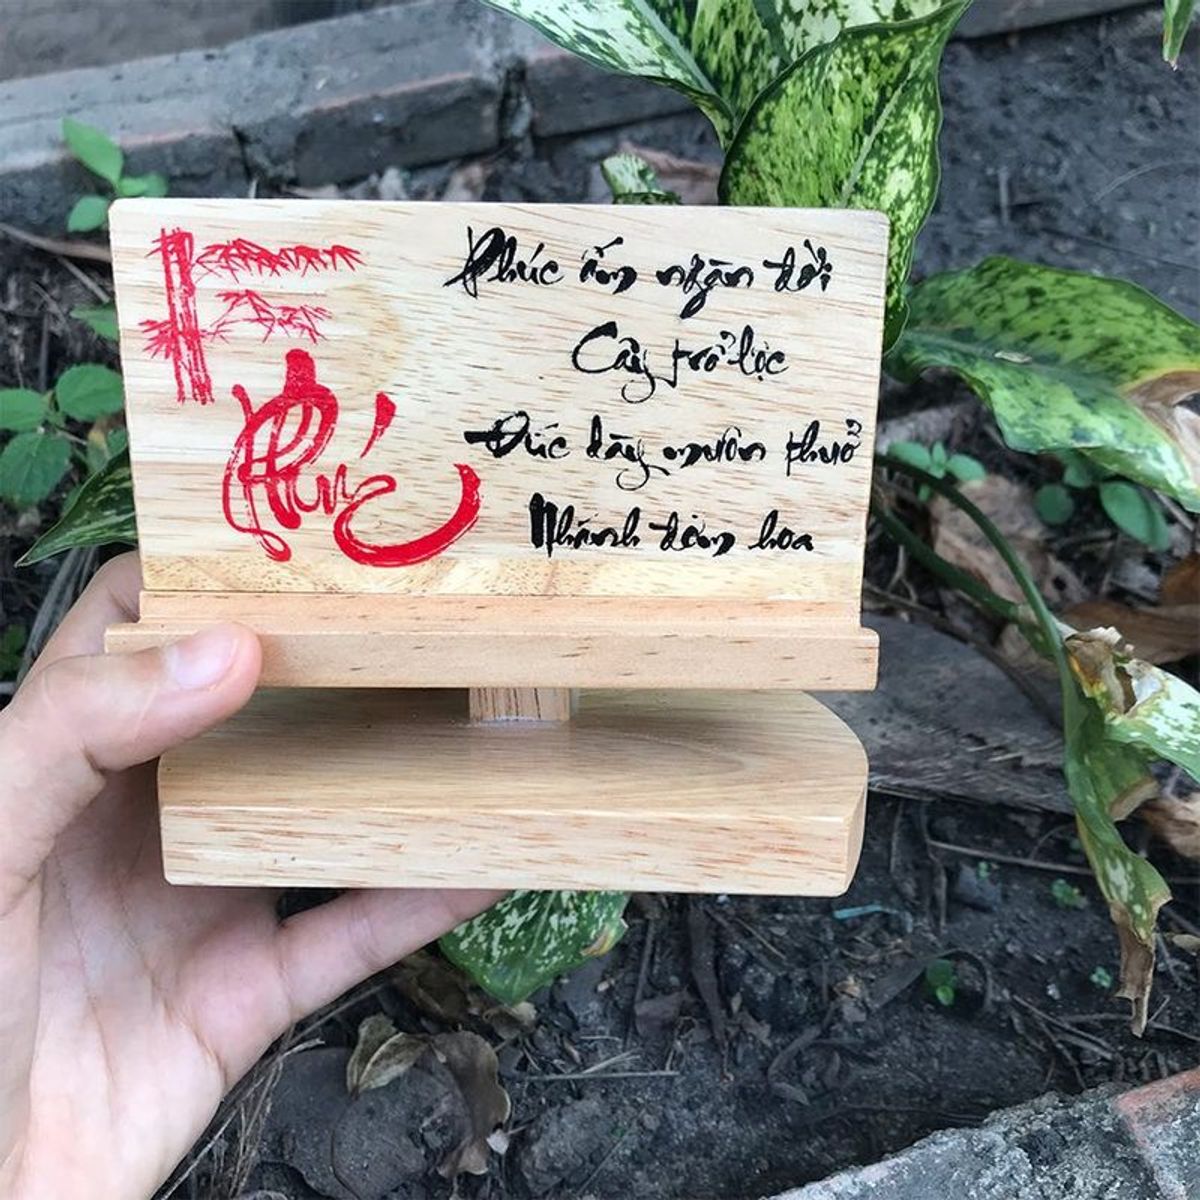 Phúc
Phúc ấm ngàn đời
Cây trổ lộc
Đức dày muôn thuở
Nhánh đơm hoa